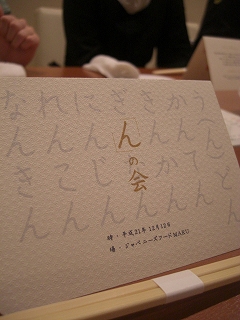 んの会
うんどん
かんてん
きんかん
ぎん
にんじん
れんこん
なんきん
時・平成21年 12月12日
場・ジャパニーズフードMARU